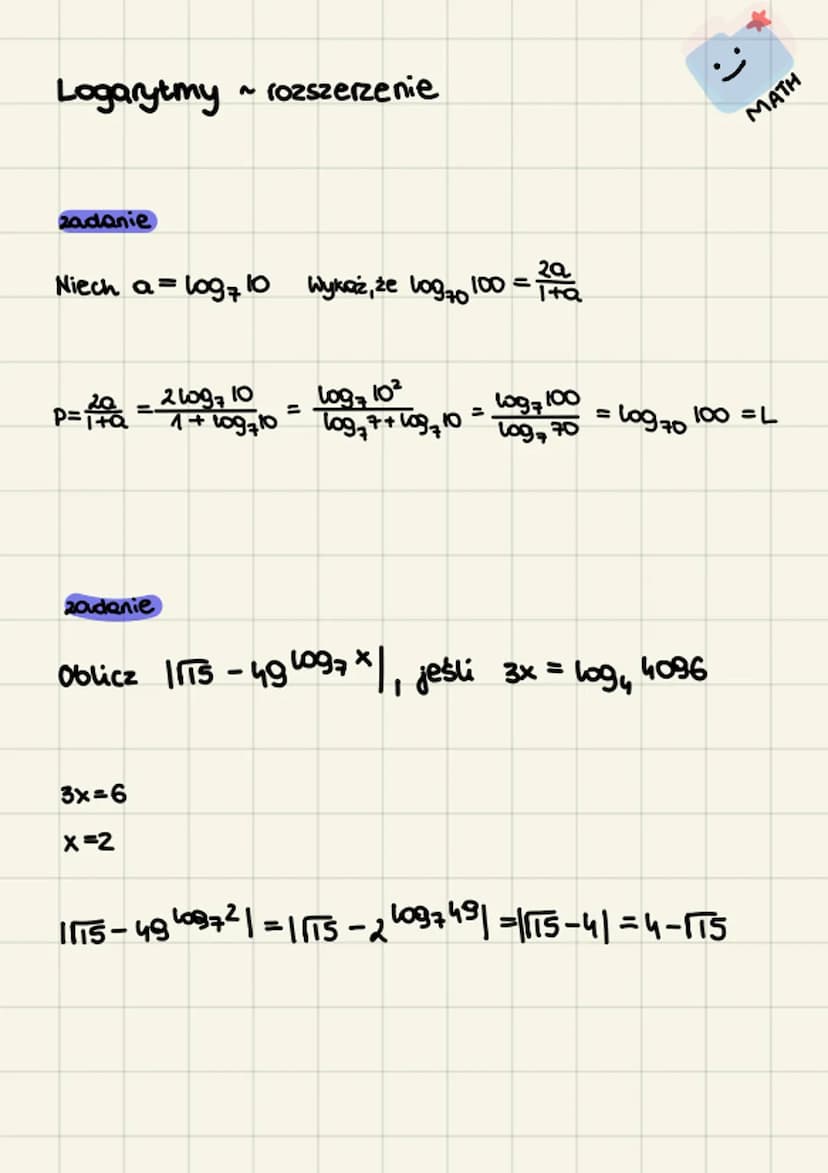 Logarytmy ~ rozszerzenie
MATH
zadanie
Niech a = log₇10 Wykaż, że log₇₀100 = 2a/(1+a)
P = 2a/(1+a) = 2log₇10/(1 + log₇10) = log₇10²/(log₇7 + log₇10) = log₇100/log₇70 = log₇₀100 = L
zadanie
Oblicz |√15 − 49^(log₇x)|, jeśli 3x = log₄4096
3x = 6
x = 2
|√15 − 49^(log₇2)| = |√15 − 2^(log₇49)| = |√15 − 4| = 4 − √15